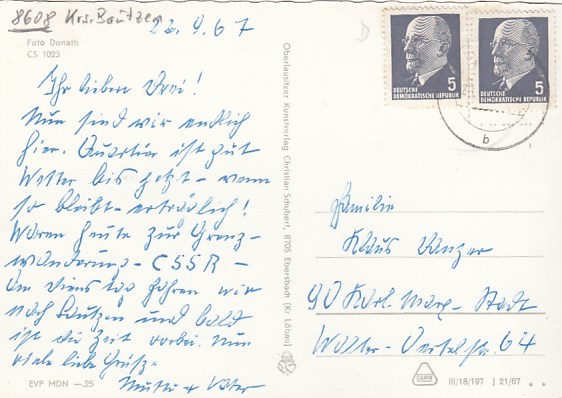 8608 Krs. Bautzen
22.9.67
Foto Donath
CS 1023
Ihr lieben Drei!
Nun sind wir endlich
hier. Quartier ist gut
Wetter bis jetzt - wenn
so bleibt - erträglich!
Waren heute zur Grenz-
wanderung - ČSSR -
Am Dienstag fahren wir
nach Bautzen und bald
ist die Zeit vorbei. Nun
viele liebe Grüße
Mutti + Vater
EVP MDN —.25
Oberlausitzer Kunstverlag Christian Schubert, 8705 Ebersbach (Kr. Löbau)
5
DEUTSCHE
DEMOKRATISCHE REPUBLIK
5
DEUTSCHE
DEMOKRATISCHE REPUBLIK
b
Familie
Klaus
90 Karl-Marx-Stadt
Walter-Oertelstr. 64
III/18/197 J 21/67